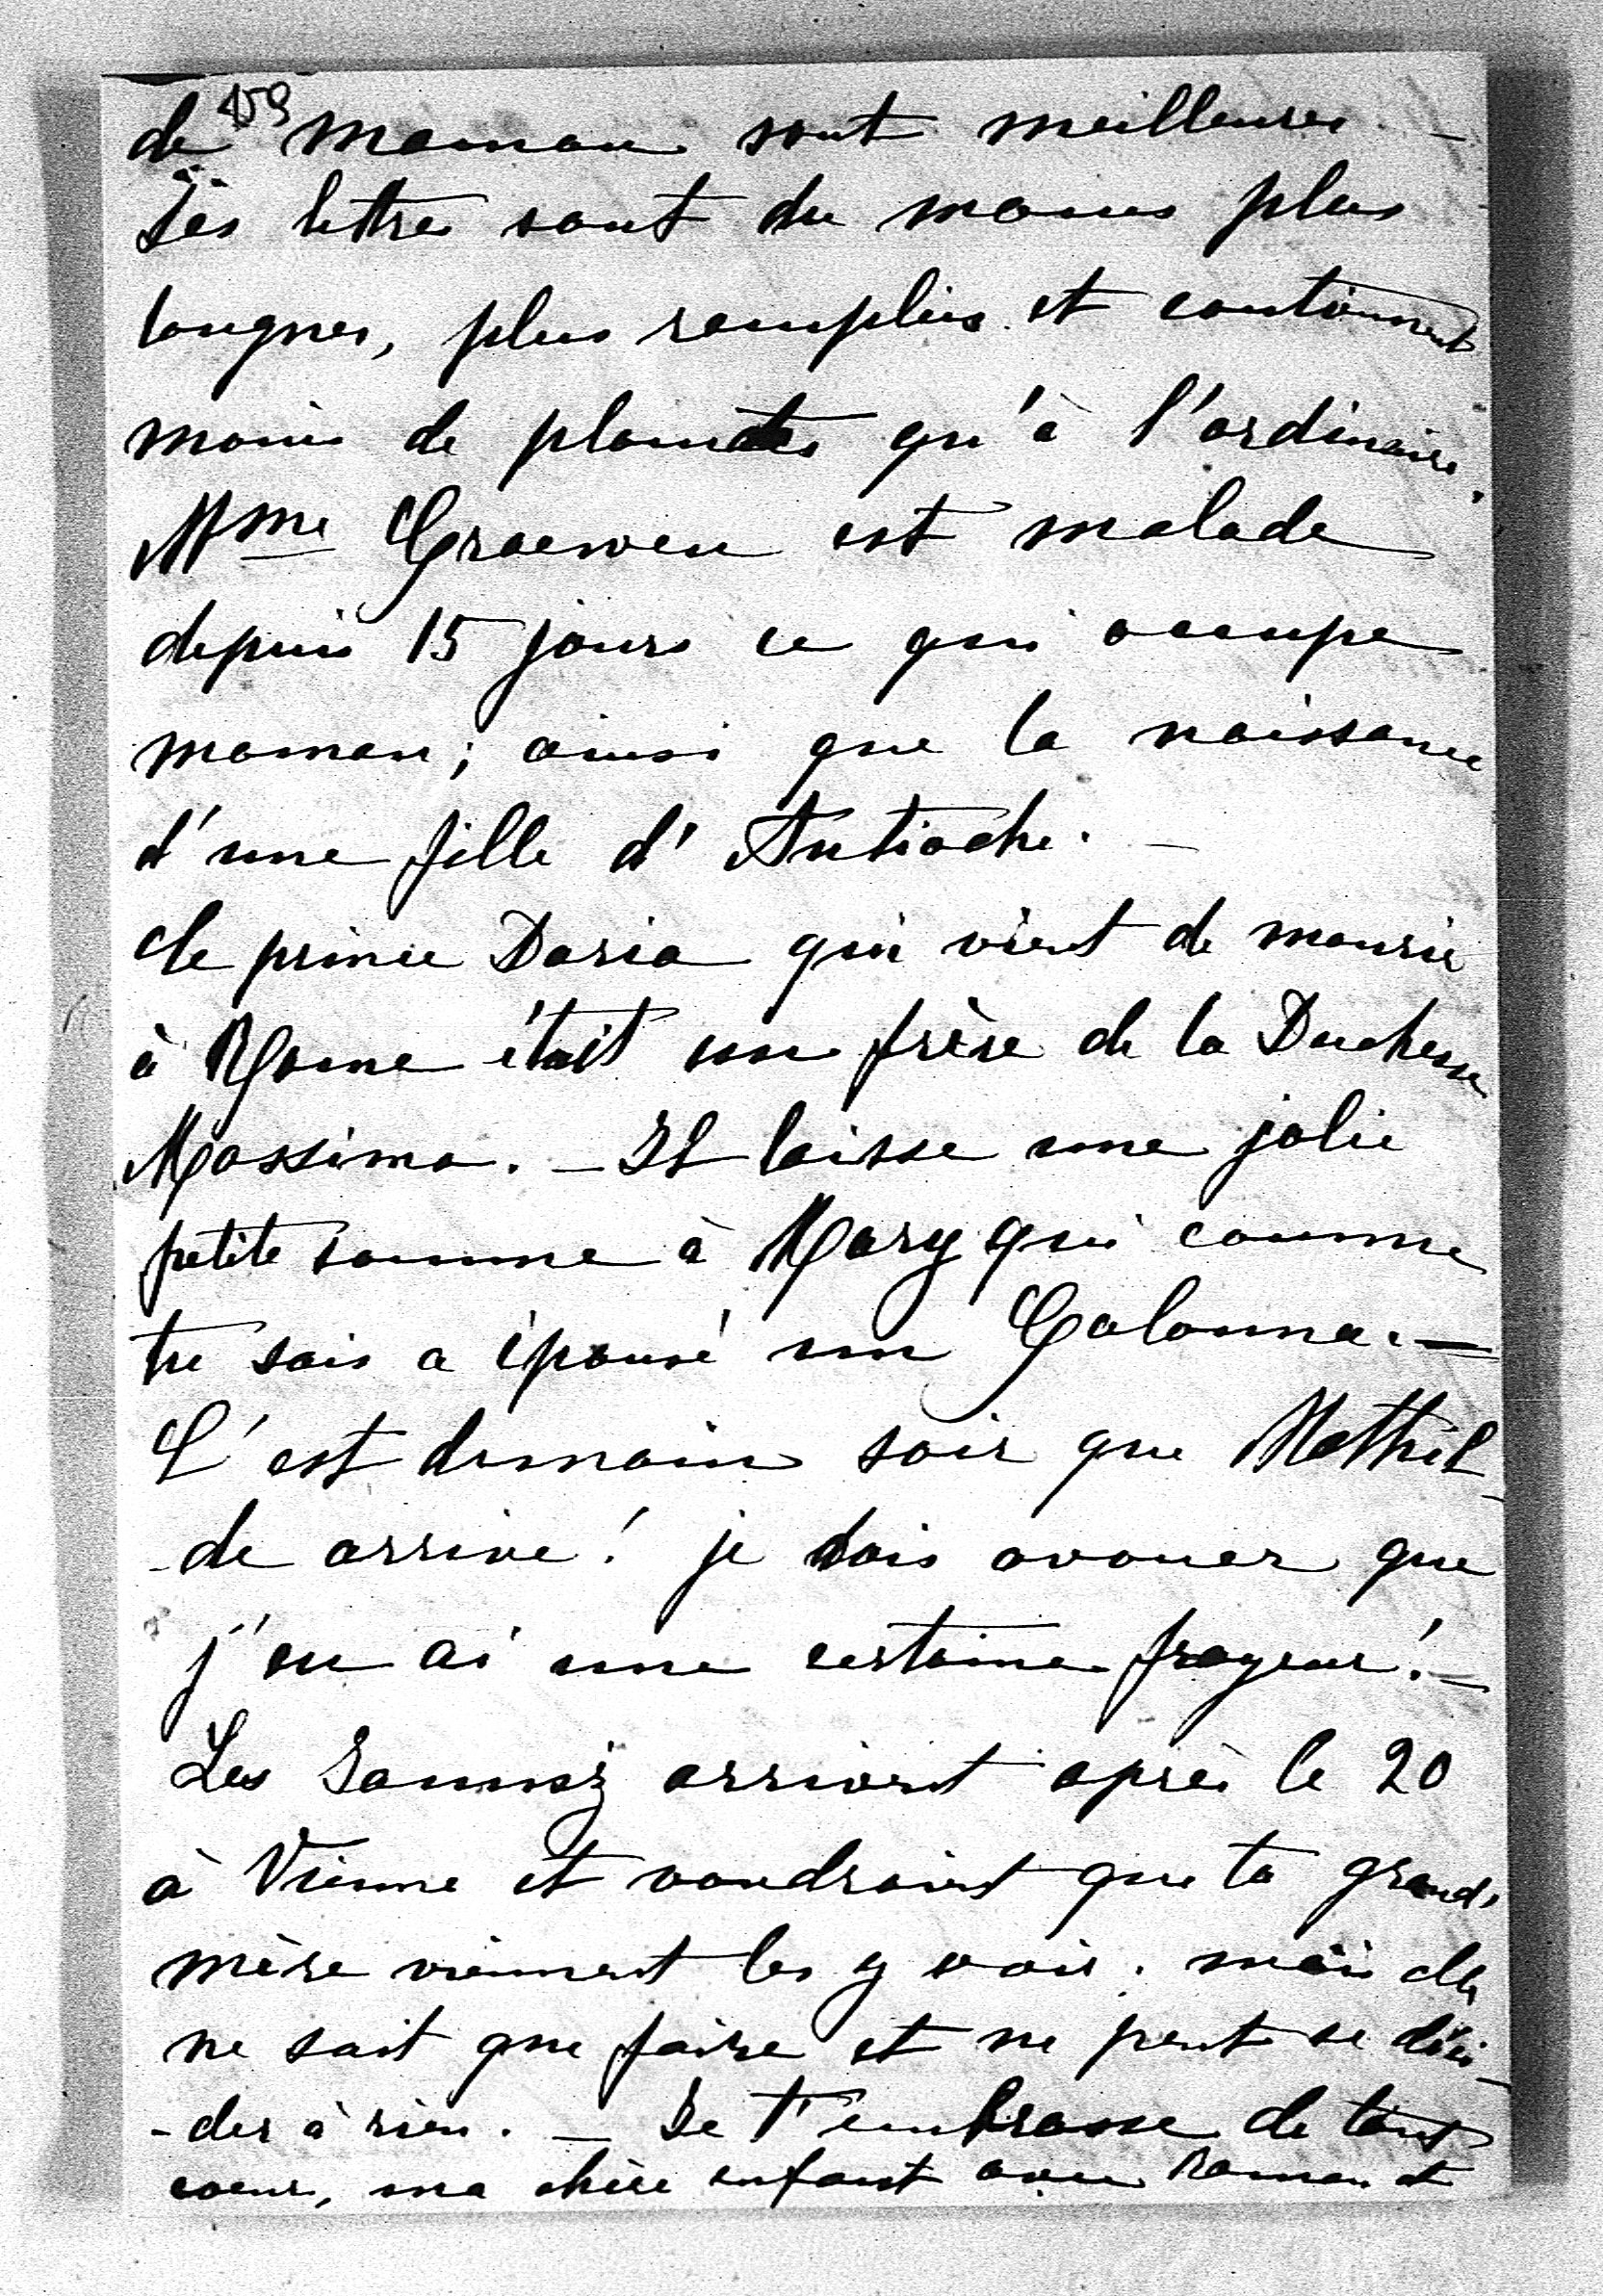 159
de maman sont meilleures –
Ses lettres sont du moins plus
longues, plus remplies et contiennent
moins de plaintes qu'à l'ordinaire.
Mme Graeven est malade
depuis 15 jours ce qui occupe
maman; ainsi que la naissance
d'une fille d'Antioche. –
Le prince Doria qui vient de mourir
à Rome était un frère de la Duchesse
Massimo. – Il laisse une jolie
petite somme à Mary qui comme
tu sais a épousé un Colonna. –
C'est demain soir que Mathil-
-de arrive! je dois avouer que
j'en ai une certaine frayeur! –
Les arrivent après le 20
à Vienne et voudraient que ta grand-
mère viennent les y voir. mais elle
ne sait que faire et ne peut se déci-
-der à rien. – Je t'embrasse de tout
coeur, ma chère enfant avec Roman et